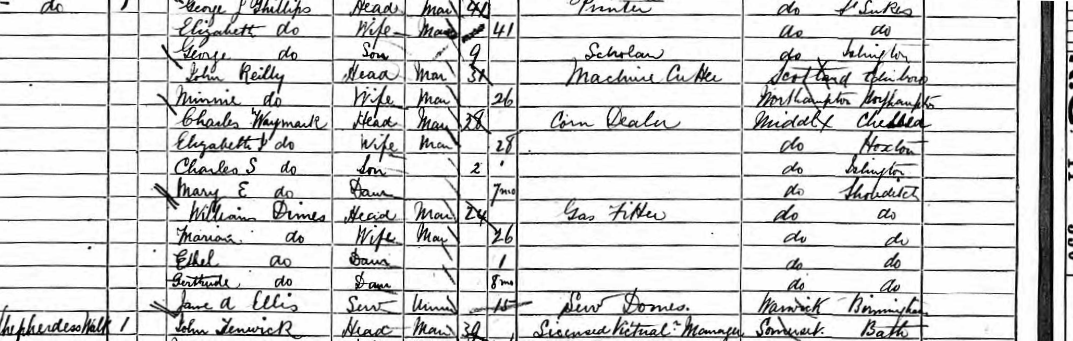 do 1 George J Phillips Head Mar 41 Printer do St Lukes
Elizabeth do Wife Mar 41 do do
George do Son 9 Scholar do Islington
John Reilly Head Mar 31 Machine Cutter Scotland Edinboro
Minnie do Wife Mar 26 Northampton Northampton
Charles Waymark Head Mar 28 Corn Dealer Middlx Chelsea
Elizabeth do Wife Mar 28 do Hoxton
Charles S do Son 2 do Islington
Mary E do Daur 7mo do Shoreditch
William Dimes Head Mar 24 Gas Fitter do do
Marian do Wife Mar 26 do do
Ethel do Daur 1 do do
Gertrude do Daur 8mo do do
Jane A Ellis Serv Unm 15 Serv Domes. Warwick Birmingham
Shepherdess Walk 1 John Fenwick Head Mar 39 Licensed Victual<sup>r</sup> Manager Somerset Bath